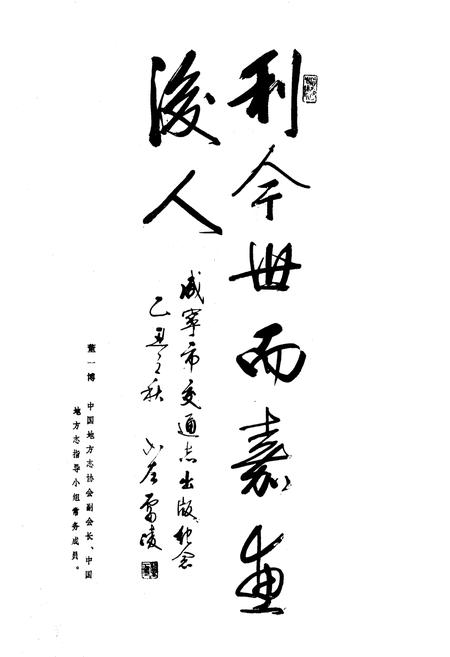 利今世而嘉惠
後人
咸寧市交通志出版纪念
乙丑之秋
董一博 中国地方志协会副会长、中国
地方志指导小组常务成员。